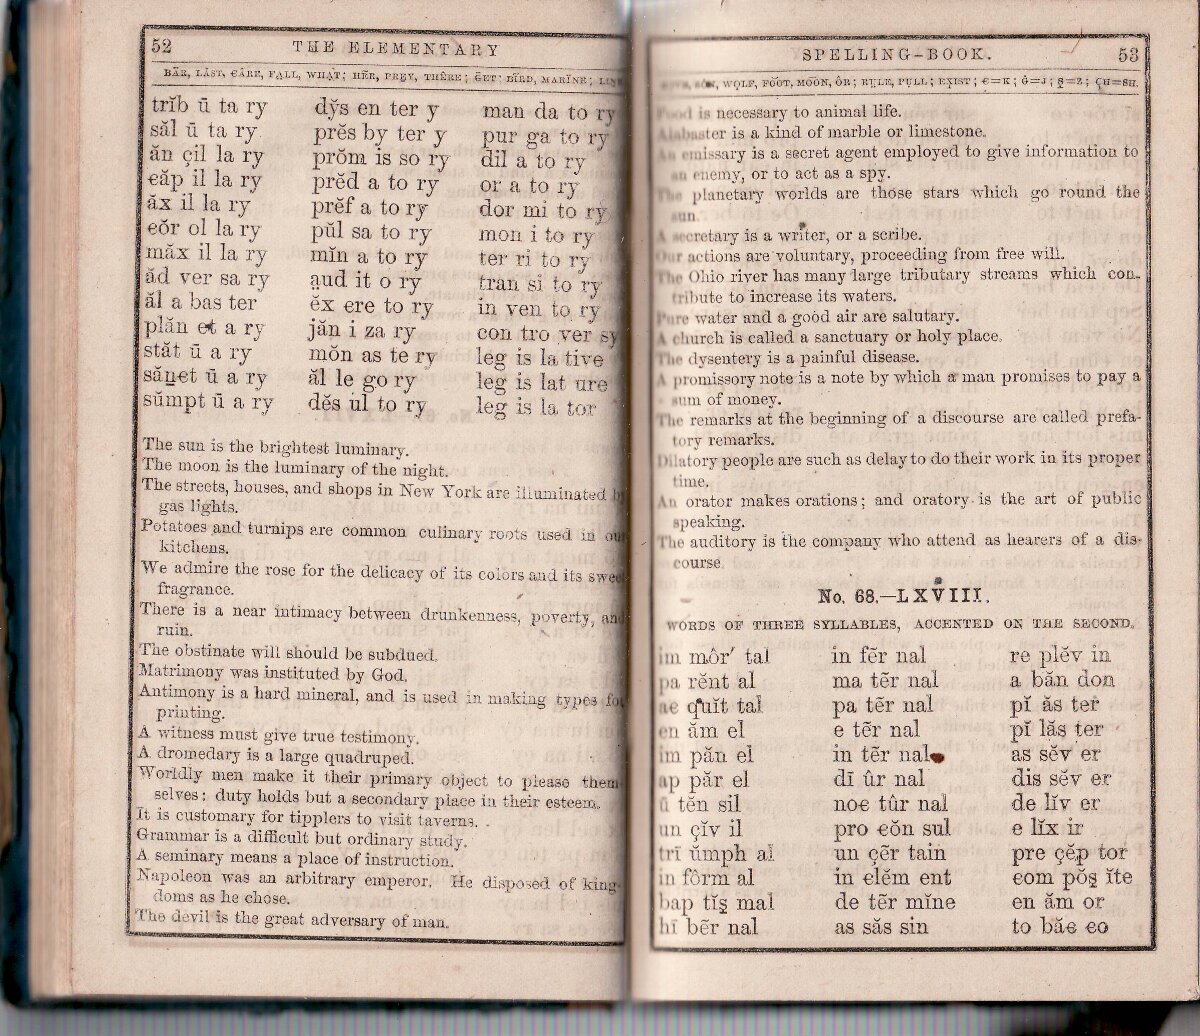 52 THE ELEMENTARY
BÄR, LÁST, ꞒÂRE, FẠLL, WHẠT; HẼR, PRẸY, THÊRE; ḠET; BÏRD, MARÏNE; LINK
trĭb ū ta ry
săl ū ta ry
ăn çil la ry
ꞓăp il la ry
ăx il la ry
ꞓŏr ol la ry
măx il la ry
ăd ver sa ry
ăl a bas ter
plăn et a ry
stăt ū a ry
săn̲ꞓt ū a ry
sŭmpt ū a ry
dy̆s en ter y
prĕs by ter y
prŏm is so ry
prĕd a to ry
prĕf a to ry
pŭl sa to ry
mĭn a to ry
ạud it o ry
ĕx ꞓre to ry
jăn i za ry
mŏn as te ry
ăl le go ry
dĕs ul to ry
man da to ry
pur ga to ry
dil a to ry
or a to ry
dor mi to ry
mon i to ry
ter ri to ry
tran si to ry
in ven to ry
con tro ver sy
leg is la tive
leg is lat ure
leg is la tor
The sun is the brightest luminary.
The moon is the luminary of the night.
The streets, houses, and shops in New York are illuminated by
gas lights.
Potatoes and turnips are common culinary roots used in our
kitchens.
We admire the rose for the delicacy of its colors and its sweet
fragrance.
There is a near intimacy between drunkenness, poverty, and
ruin.
The obstinate will should be subdued.
Matrimony was instituted by God.
Antimony is a hard mineral, and is used in making types for
printing.
A witness must give true testimony.
A dromedary is a large quadruped.
Worldly men make it their primary object to please them-
selves: duty holds but a secondary place in their esteem.
It is customary for tipplers to visit taverns.
Grammar is a difficult but ordinary study.
A seminary means a place of instruction.
Napoleon was an arbitrary emperor. He disposed of king-
doms as he chose.
The devil is the great adversary of man.
SPELLING-BOOK. 53
SȮN, WO̤LF, FO͝OT, MO͞ON, ÔR; RU̱LE, PU̱LL; EX̱IST; Ꞓ=K; Ġ=J; S̱=Z; ÇH=SH.
Food is necessary to animal life.
Alabaster is a kind of marble or limestone.
An emissary is a secret agent employed to give information to
an enemy, or to act as a spy.
The planetary worlds are those stars which go round the
sun.
A secretary is a writer, or a scribe.
Our actions are voluntary, proceeding from free will.
The Ohio river has many large tributary streams which con-
tribute to increase its waters.
Pure water and a good air are salutary.
A church is called a sanctuary or holy place.
The dysentery is a painful disease.
A promissory note is a note by which a man promises to pay a
sum of money.
The remarks at the beginning of a discourse are called prefa-
tory remarks.
Dilatory people are such as delay to do their work in its proper
time.
An orator makes orations; and oratory is the art of public
speaking.
The auditory is the company who attend as hearers of a dis-
course.
No. 68.—LXVIII.
WORDS OF THREE SYLLABLES, ACCENTED ON THE SECOND.
im môr′ tal
pa rĕnt al
aꞓ quĭt tal
en ăm el
im păn el
ap păr el
ū tĕn sil
un çĭv il
trī ŭmph al
in fôrm al
bap tĭs̱ mal
hī bẽr nal
in fẽr nal
ma tẽr nal
pa tẽr nal
e tẽr nal
in tẽr nal
dī ûr nal
noꞓ tûr nal
pro ꞓŏn sul
un çẽr tain
in ꞓlĕm ent
de tẽr mĭne
as săs sin
re plĕv in
a băn don
pĭ ăs ter
pĭ lăs ter
as sĕv er
dis sĕv er
de lĭv er
e lĭx ir
pre çĕp tor
ꞓom pŏs̱ ĭte
en ăm or
to băꞓ ꞓo